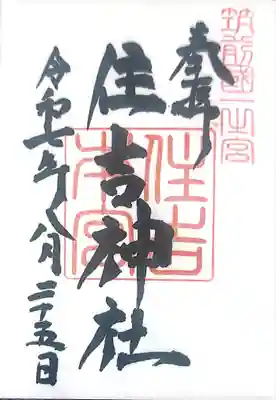 筑前國一之宮
奉拝
住吉神社
住吉
本宮
令和七年八月二十五日